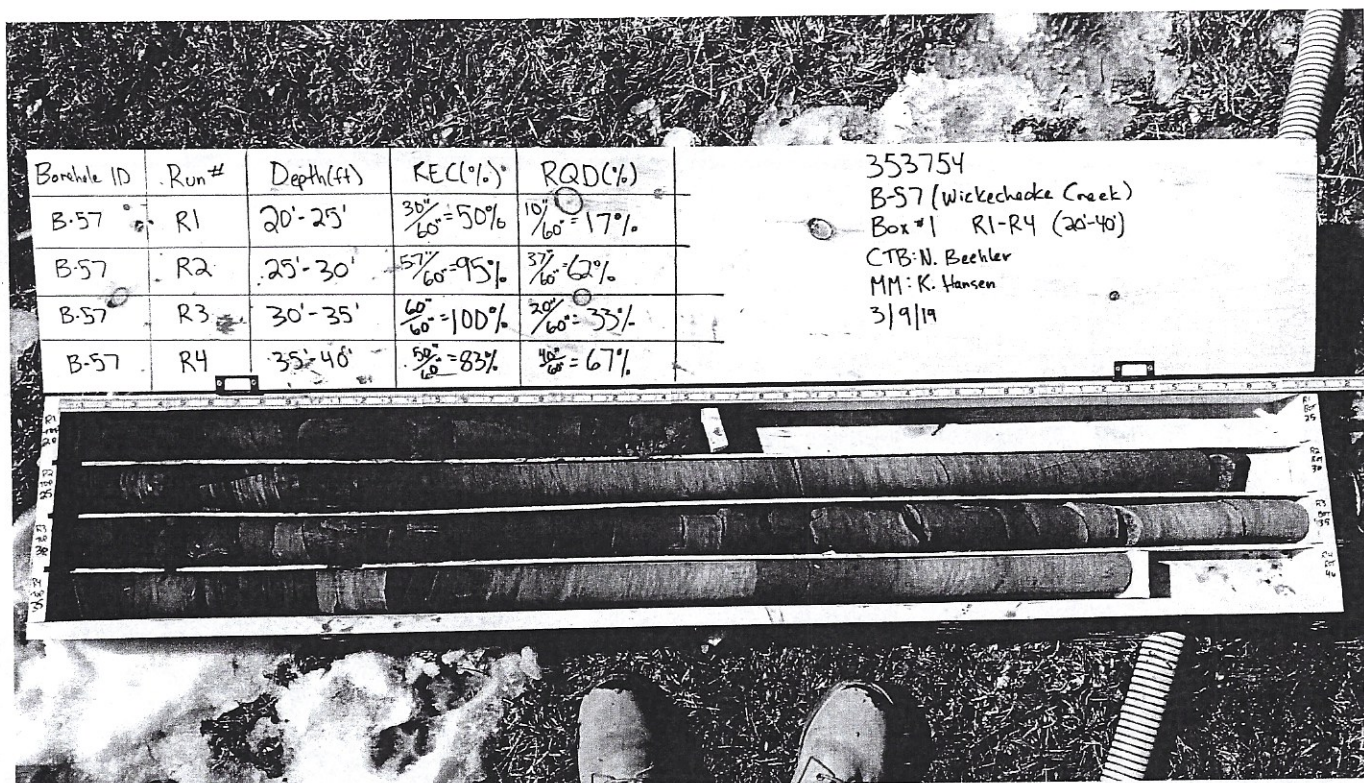 Borehole ID Run# Depth(ft) REC(%) RQD(%)
B-57 R1 20'-25' 30"/60"=50% 10"/60"=17%
B-57 R2 25'-30' 57"/60"=95% 37"/60"=62%
B-57 R3 30'-35' 60"/60"=100% 20"/60"=33%
B-57 R4 35'-40' 50"/60"=83% 40"/60"=67%
353754
B-57 (Wickecheoke Creek)
Box #1 R1-R4 (20'-40')
CTB: N. Beehler
MM: K. Hansen
3/9/19
R1
20
R1
Bot
25
R2
R3
Bot
35